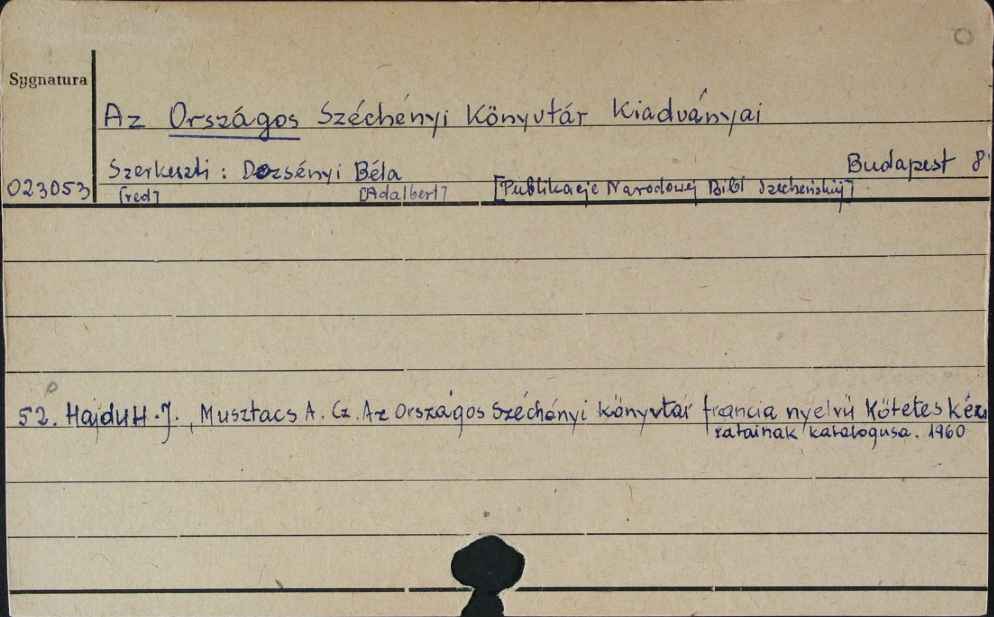 Sygnatura
Az Országos Széchényi Könyvtár Kiadványai
Szerkeszti: Dezsényi Béla Budapest 8°
023053 [red] [Adalbert] [Publikacje Narodowej Bibl Szecheńskiy]
52. Hajdu H. J., Musztacs A. Cz. Az Országos Széchényi könyvtár francia nyelvü Kötetes kéz
ratainak katalogusa. 1960